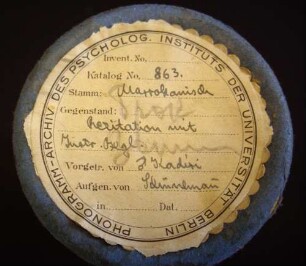 PHONOGRAMM-ARCHIV DES PSYCHOLOG. INSTITUTS DER UNIVERSITÄT BERLIN
Invent. No.
Katalog No. 863.
Stamm: Marrokanisch
Gegenstand:
Rezitation mit
Instr. Begl.
Vorgetr. von
Aufgen. von
in Dat.